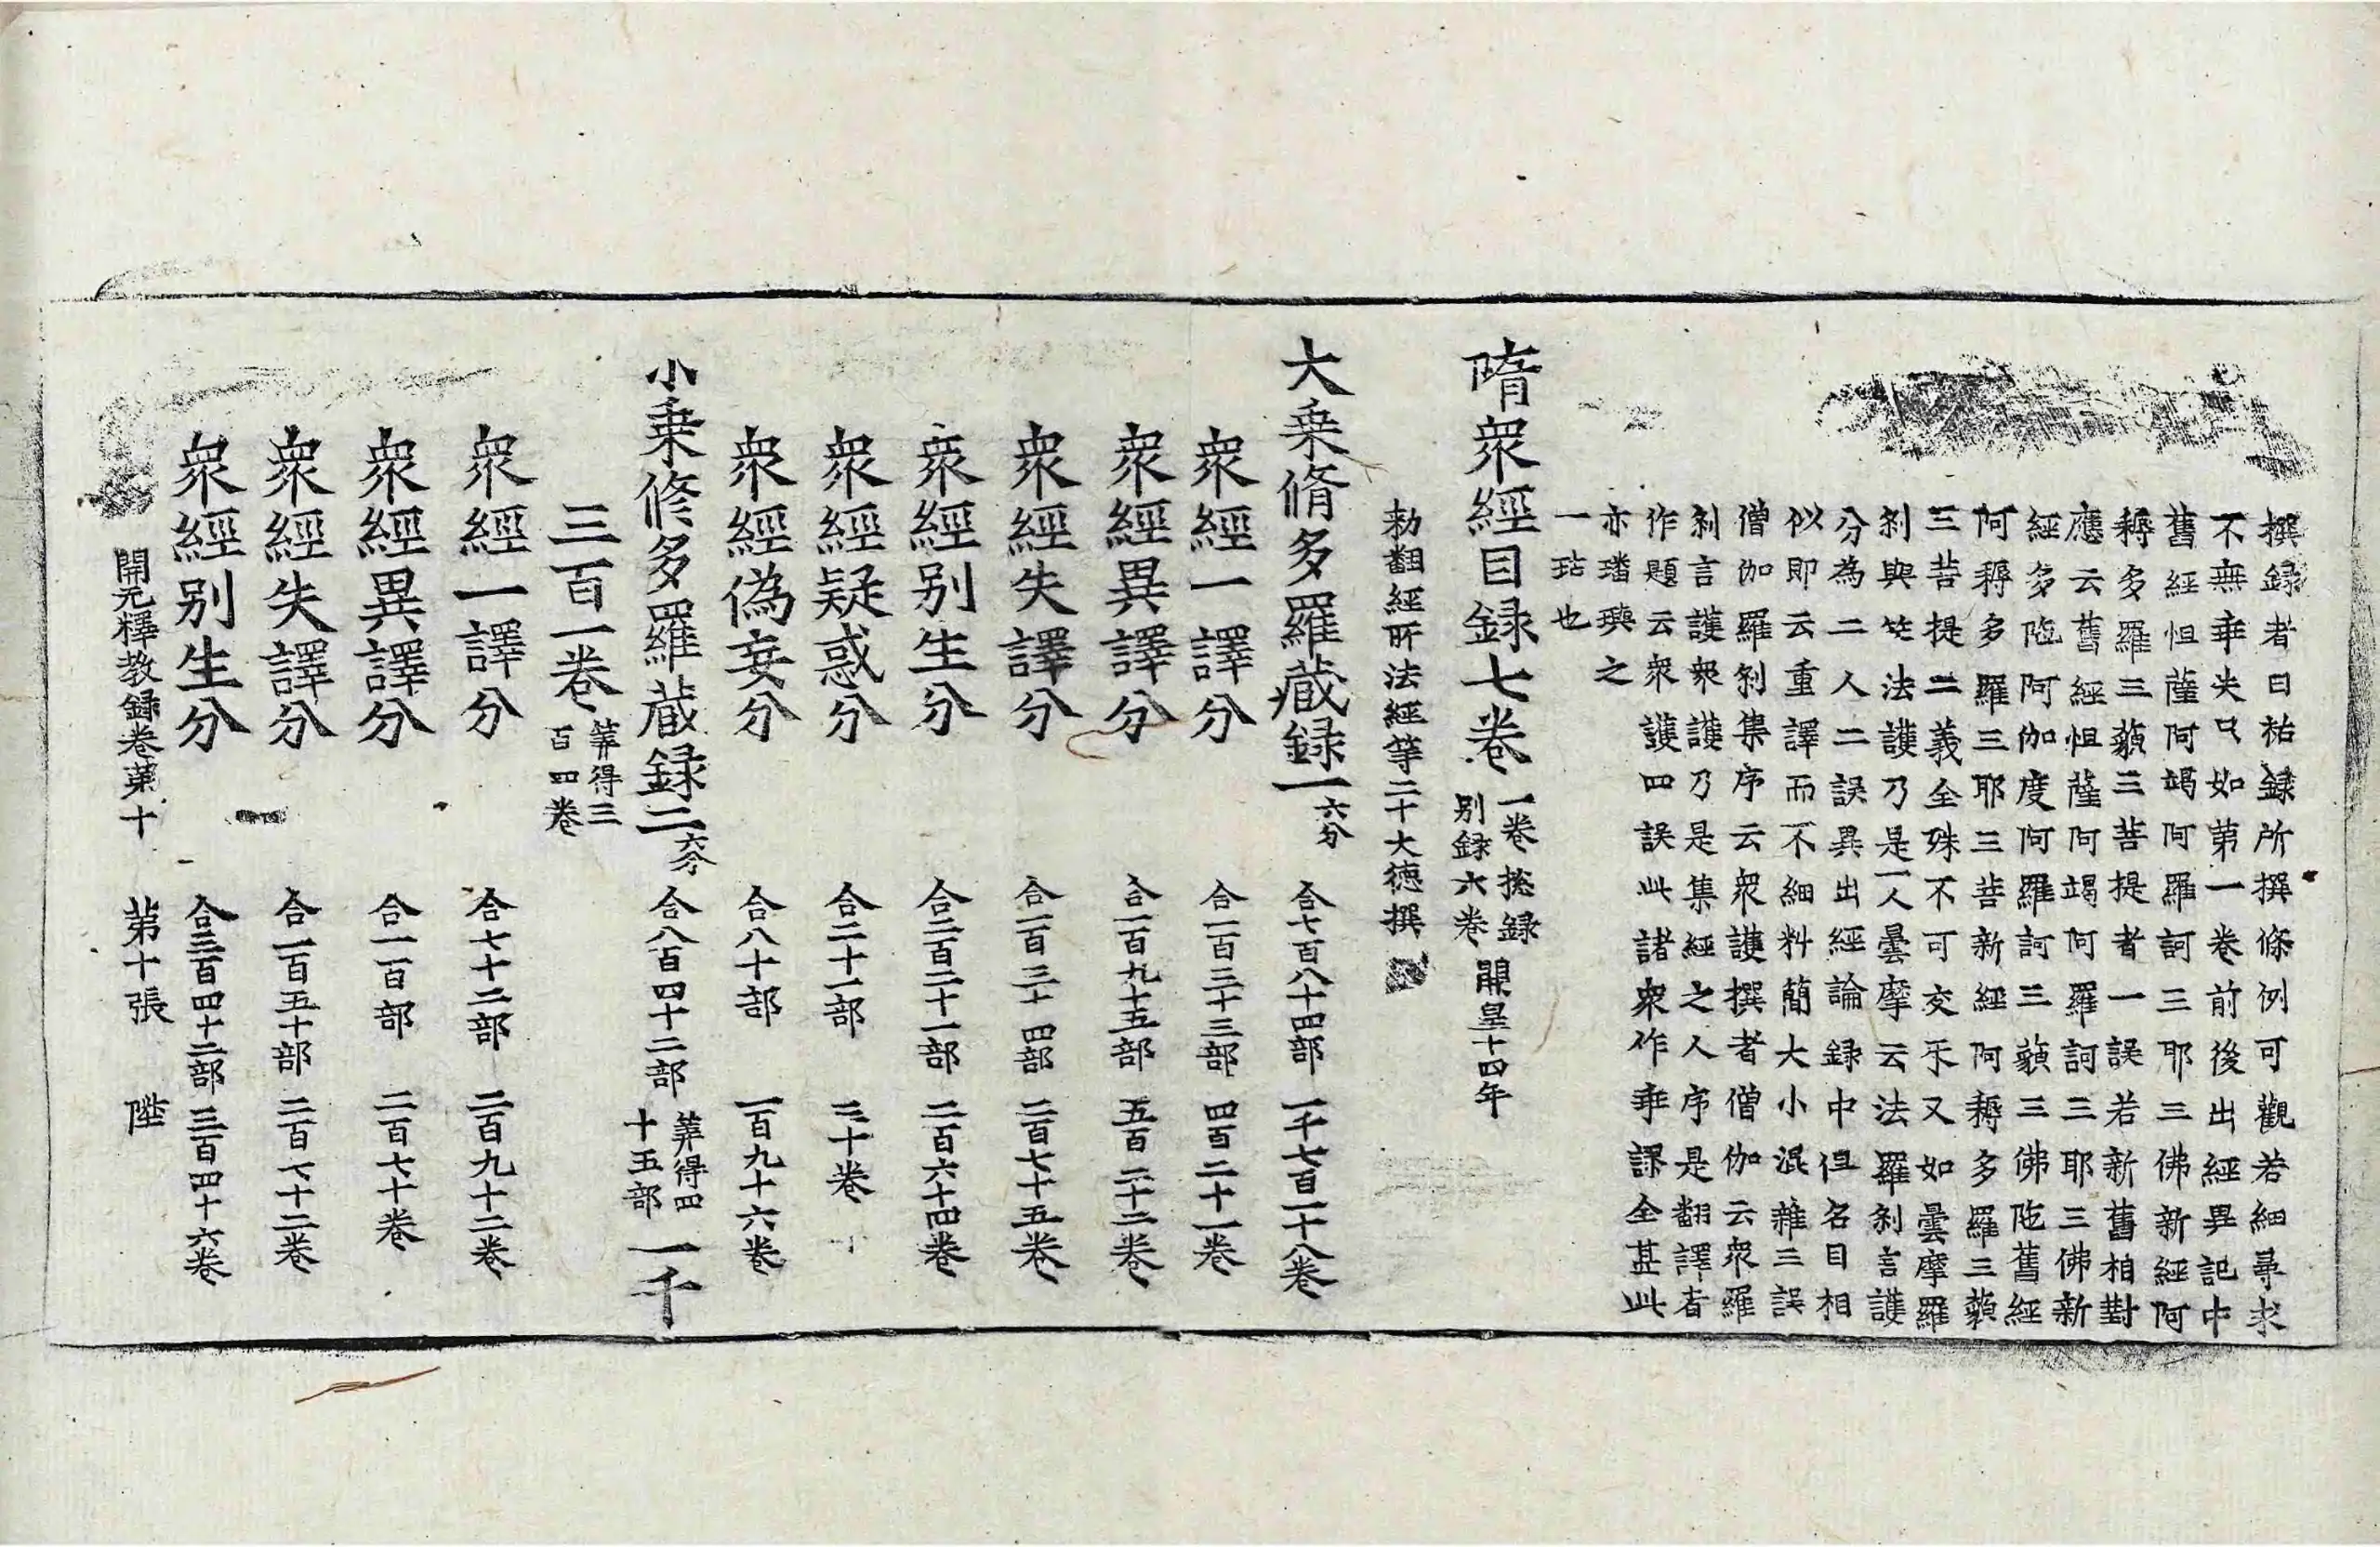 撰録者曰祐録所撰條例可觀若細尋求
不無乖失只如第一卷前後出經異記中
舊經怛薩阿竭阿羅訶三耶三佛新經阿
耨多羅三藐三菩提者一誤若新舊相對
應云舊經怛薩阿竭阿羅訶三耶三佛新
經多陁阿伽度阿羅訶三藐三佛陁舊經
阿耨多羅三耶三菩新經阿耨多羅三藐
三菩提二義全殊不可交禾又如曇摩羅
刹與竺法護乃是一人曇摩云法羅刹言護
分為二人二誤異出經論録中但名目相
似即云重譯而不細料簡大小混雜三誤
僧伽羅刹集序云衆護撰者僧伽云衆羅
刹言護衆護乃是集經之人序是翻譯者
作題云衆護四誤此諸衆作乖謬全甚此
亦璠璵之
一玷也
隋衆經目録七卷 一卷捴録 別録六卷 開皇十四年
勑翻經所法經等二十大德撰
大乗脩多羅藏録一六分 合七百八十四部 一千七百一十八卷
衆經一譯分 合一百三十三部 四百二十一卷
衆經異譯分 合一百九十五部 五百三十二卷
衆經失譯分 合一百三十四部 二百七十五卷
衆經別生分 合二百二十一部 二百六十四卷
衆經疑惑分 合二十一部 三十卷
衆經偽妄分 合八十部 一百九十六卷
小乗修多羅藏録二六分 合八百四十二部 筭得四十五部 一千
三百一卷 筭得三百四卷
衆經一譯分 合七十二部 二百九十二卷
衆經異譯分 合一百部 二百七十卷
衆經失譯分 合一百五十部 二百七十二卷
衆經別生分 合三百四十二部 三百四十六卷
開元釋教録卷第十 第十張 陛